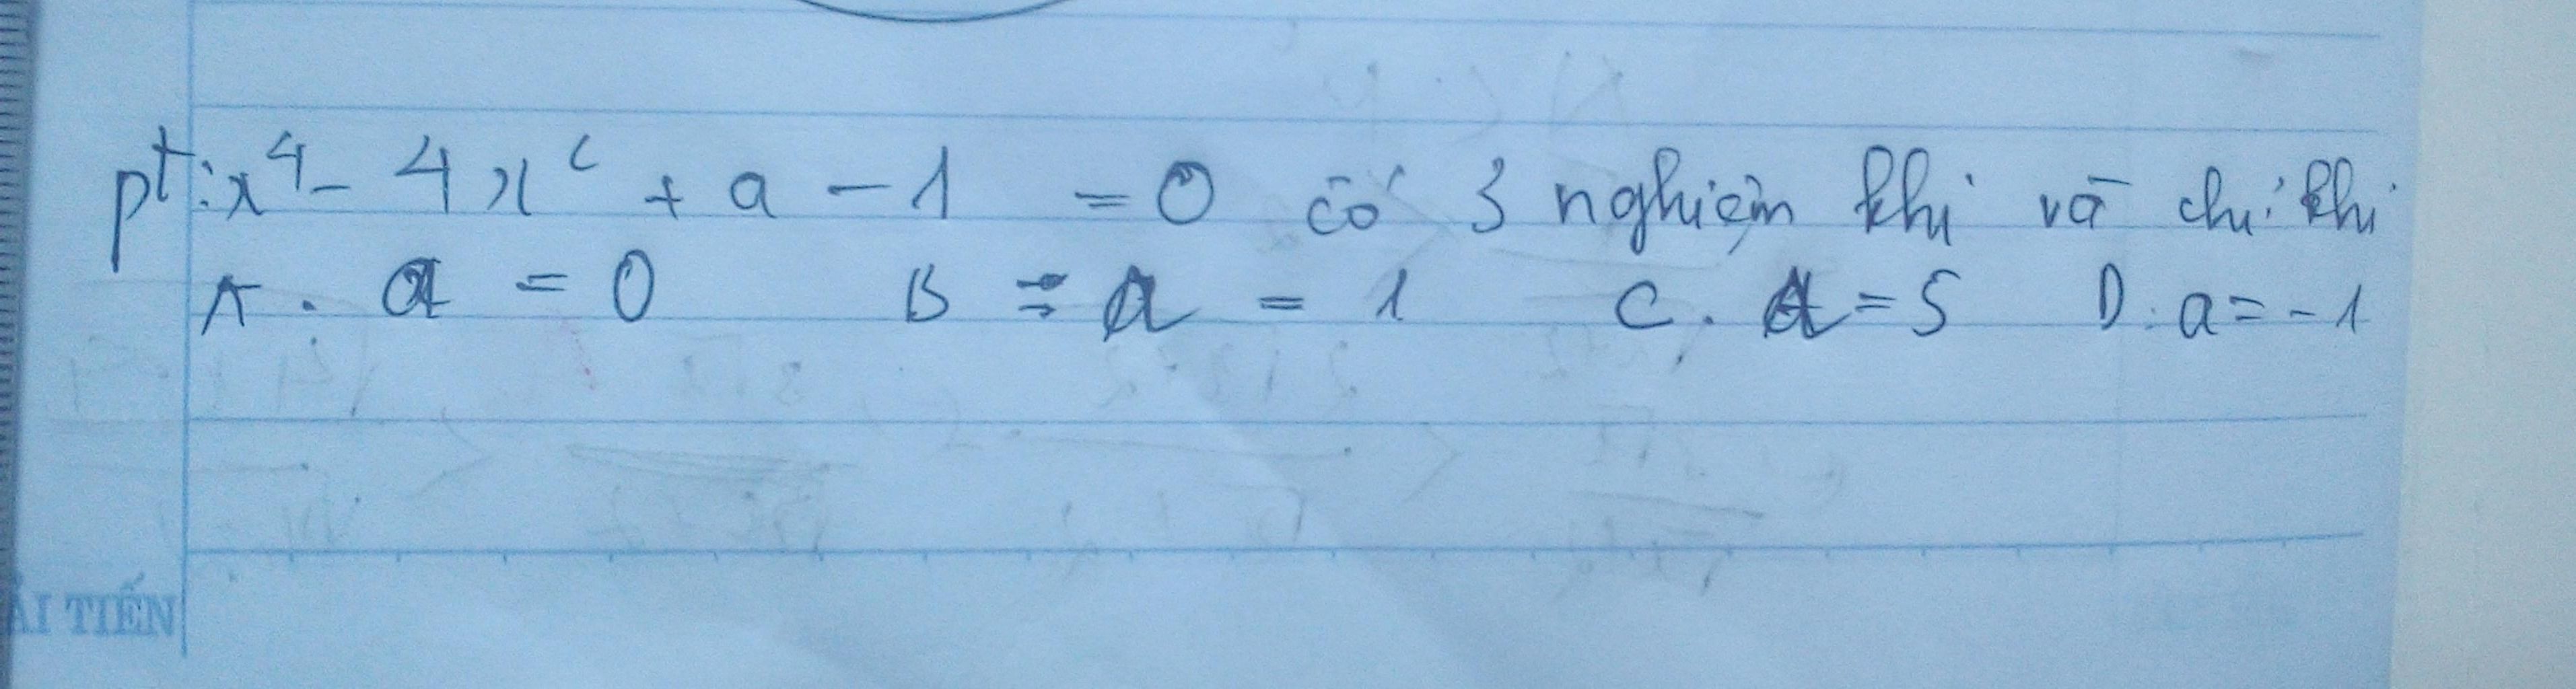 pt: x⁴ - 4x² + a - 1 = 0 có 3 nghiệm khi và chỉ khi
A. a = 0 B = a = 1 C. a = 5 D. a = -1
ẢI TIẾN